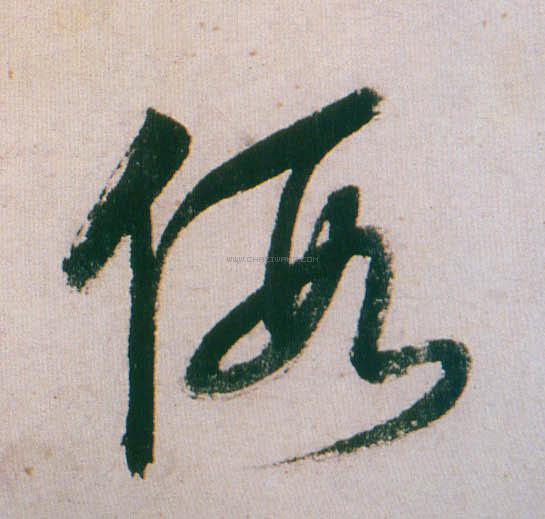 假
WWW.CHAZIWANG.COM